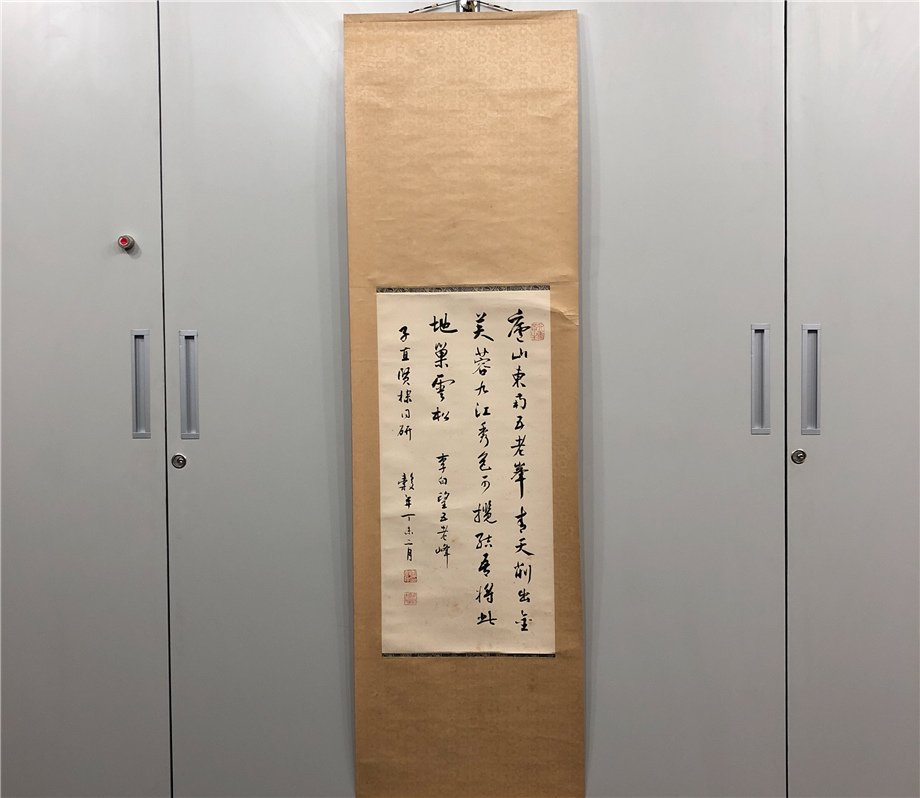 廬山東南五老峯青天削出金
芙蓉九江秀色可攬結吾將此
地巢雲松
李白望五老峰
子直賢棣同研
穀年丁未二月